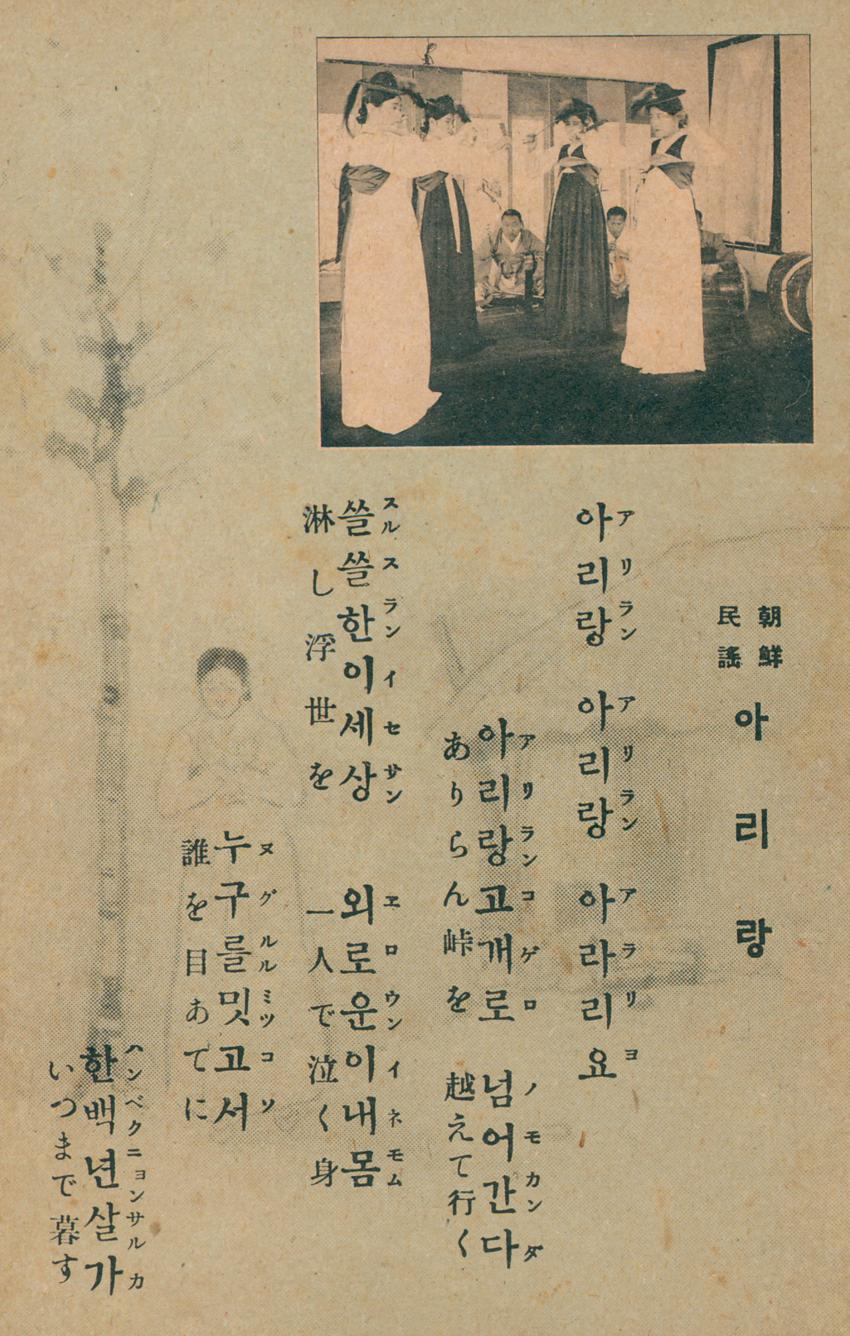 朝鮮
民謠
아리랑
アリラン アリラン アラリヨ
아리랑 아리랑 아라리요
アリランコゲロ ノモカンダ
아리랑고개로 넘어간다
ありらん峠を 越えて行く
スルスランイセサン ヱロウンイネモム
쓸쓸한이세상 외로운이내몸
淋し浮世を 一人で泣く身
ヌグルルミツコソ
누구를밋고서
誰を目あてに
ハンベクニョンサルカ
한백년살가
いつまで暮す